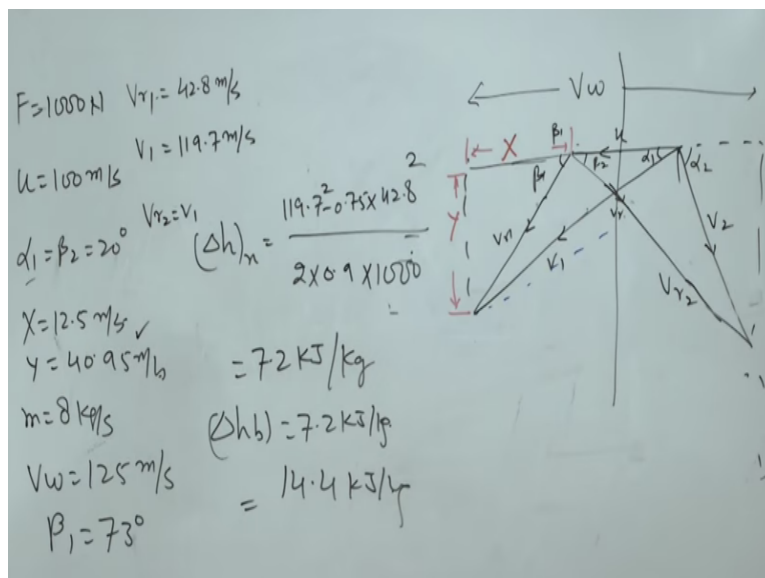 F=1000N Vr1.= 42.8 m/s
V1 = 119.7 m/s
U=100 m/s
Vr2=V1
α1=β2=20°
(Δh)n = 119.7²-0.75x42.8² / 2x0.9x1000
X=12.5 m/s ✓
Y=40.95 m/s
= 7.2 KJ/kg
m=8 kg/s
(Δhb) = 7.2 KJ/kg
Vw=125 m/s
= 14.4 KJ/kg
β1=73°
Vw
X
β1
u
β2
α1
α2
β1
Y
Vr1
V1
V2
Vr2